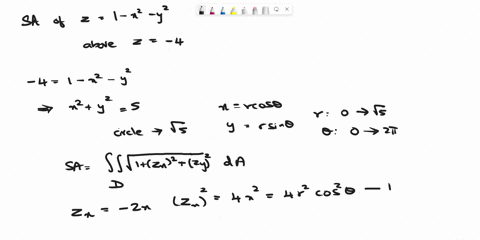 SA of z = 1 - x² - y²
above z = -4
-4 = 1 - x² - y²
⇒ x² + y² = 5
circle → √5
x = rcosθ
y = rsinθ
r: 0 → √5
θ: 0 → 2π
SA = ∬√1+(Zx)²+(Zy)² dA
D
Zx = -2x (Zx)² = 4x² = 4r² cos²θ — 1